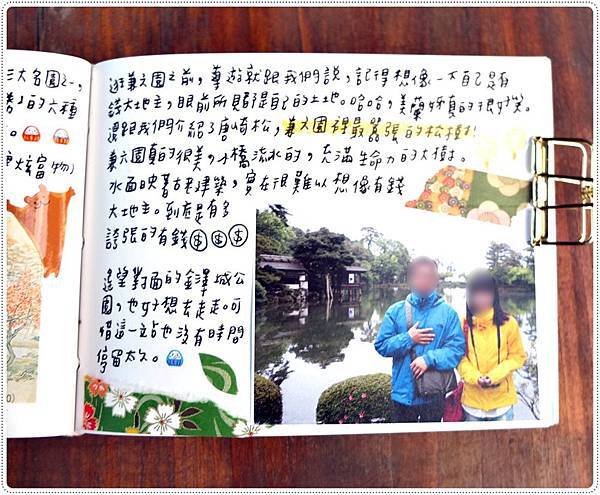 三大名園之一,
的六種
炫富物)
逛兼六園之前,導遊就跟我們說,記得想像一下自己是有
錢大地主,眼前所見都是自己的土地。哈哈,美蘭姊真的很好笑。
還跟我們介紹了唐崎松,兼六園裡最囂張的松樹!
兼六園真的很美,小橋流水的,充滿生命力的大樹。
水面映著古老建築,實在很難以想像有錢
大地主。到底是有多
誇張的有錢 $ $ $
遙望對面的金澤城公
園,也好想去走走。可
惜這一站也沒有時間
停留太久。